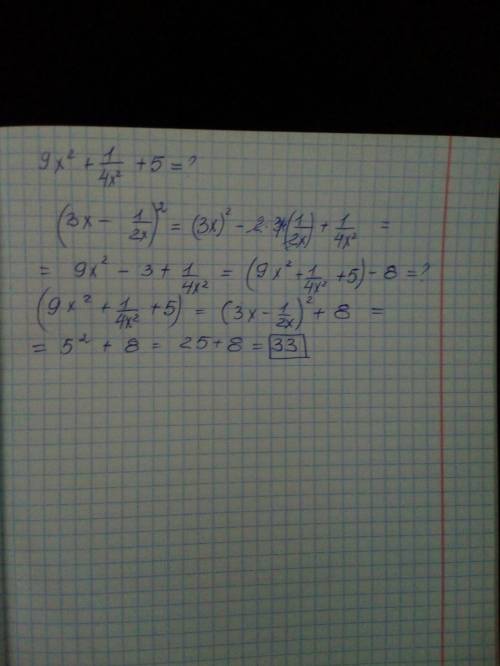 9x² + 1/4x² + 5 = ?
(3x - 1/2x)² = (3x)² - 2·3x(1/2x) + 1/4x² =
= 9x² - 3 + 1/4x² = (9x² + 1/4x² + 5) - 8 = ?
(9x² + 1/4x² + 5) = (3x - 1/2x)² + 8 =
= 5² + 8 = 25 + 8 = 33